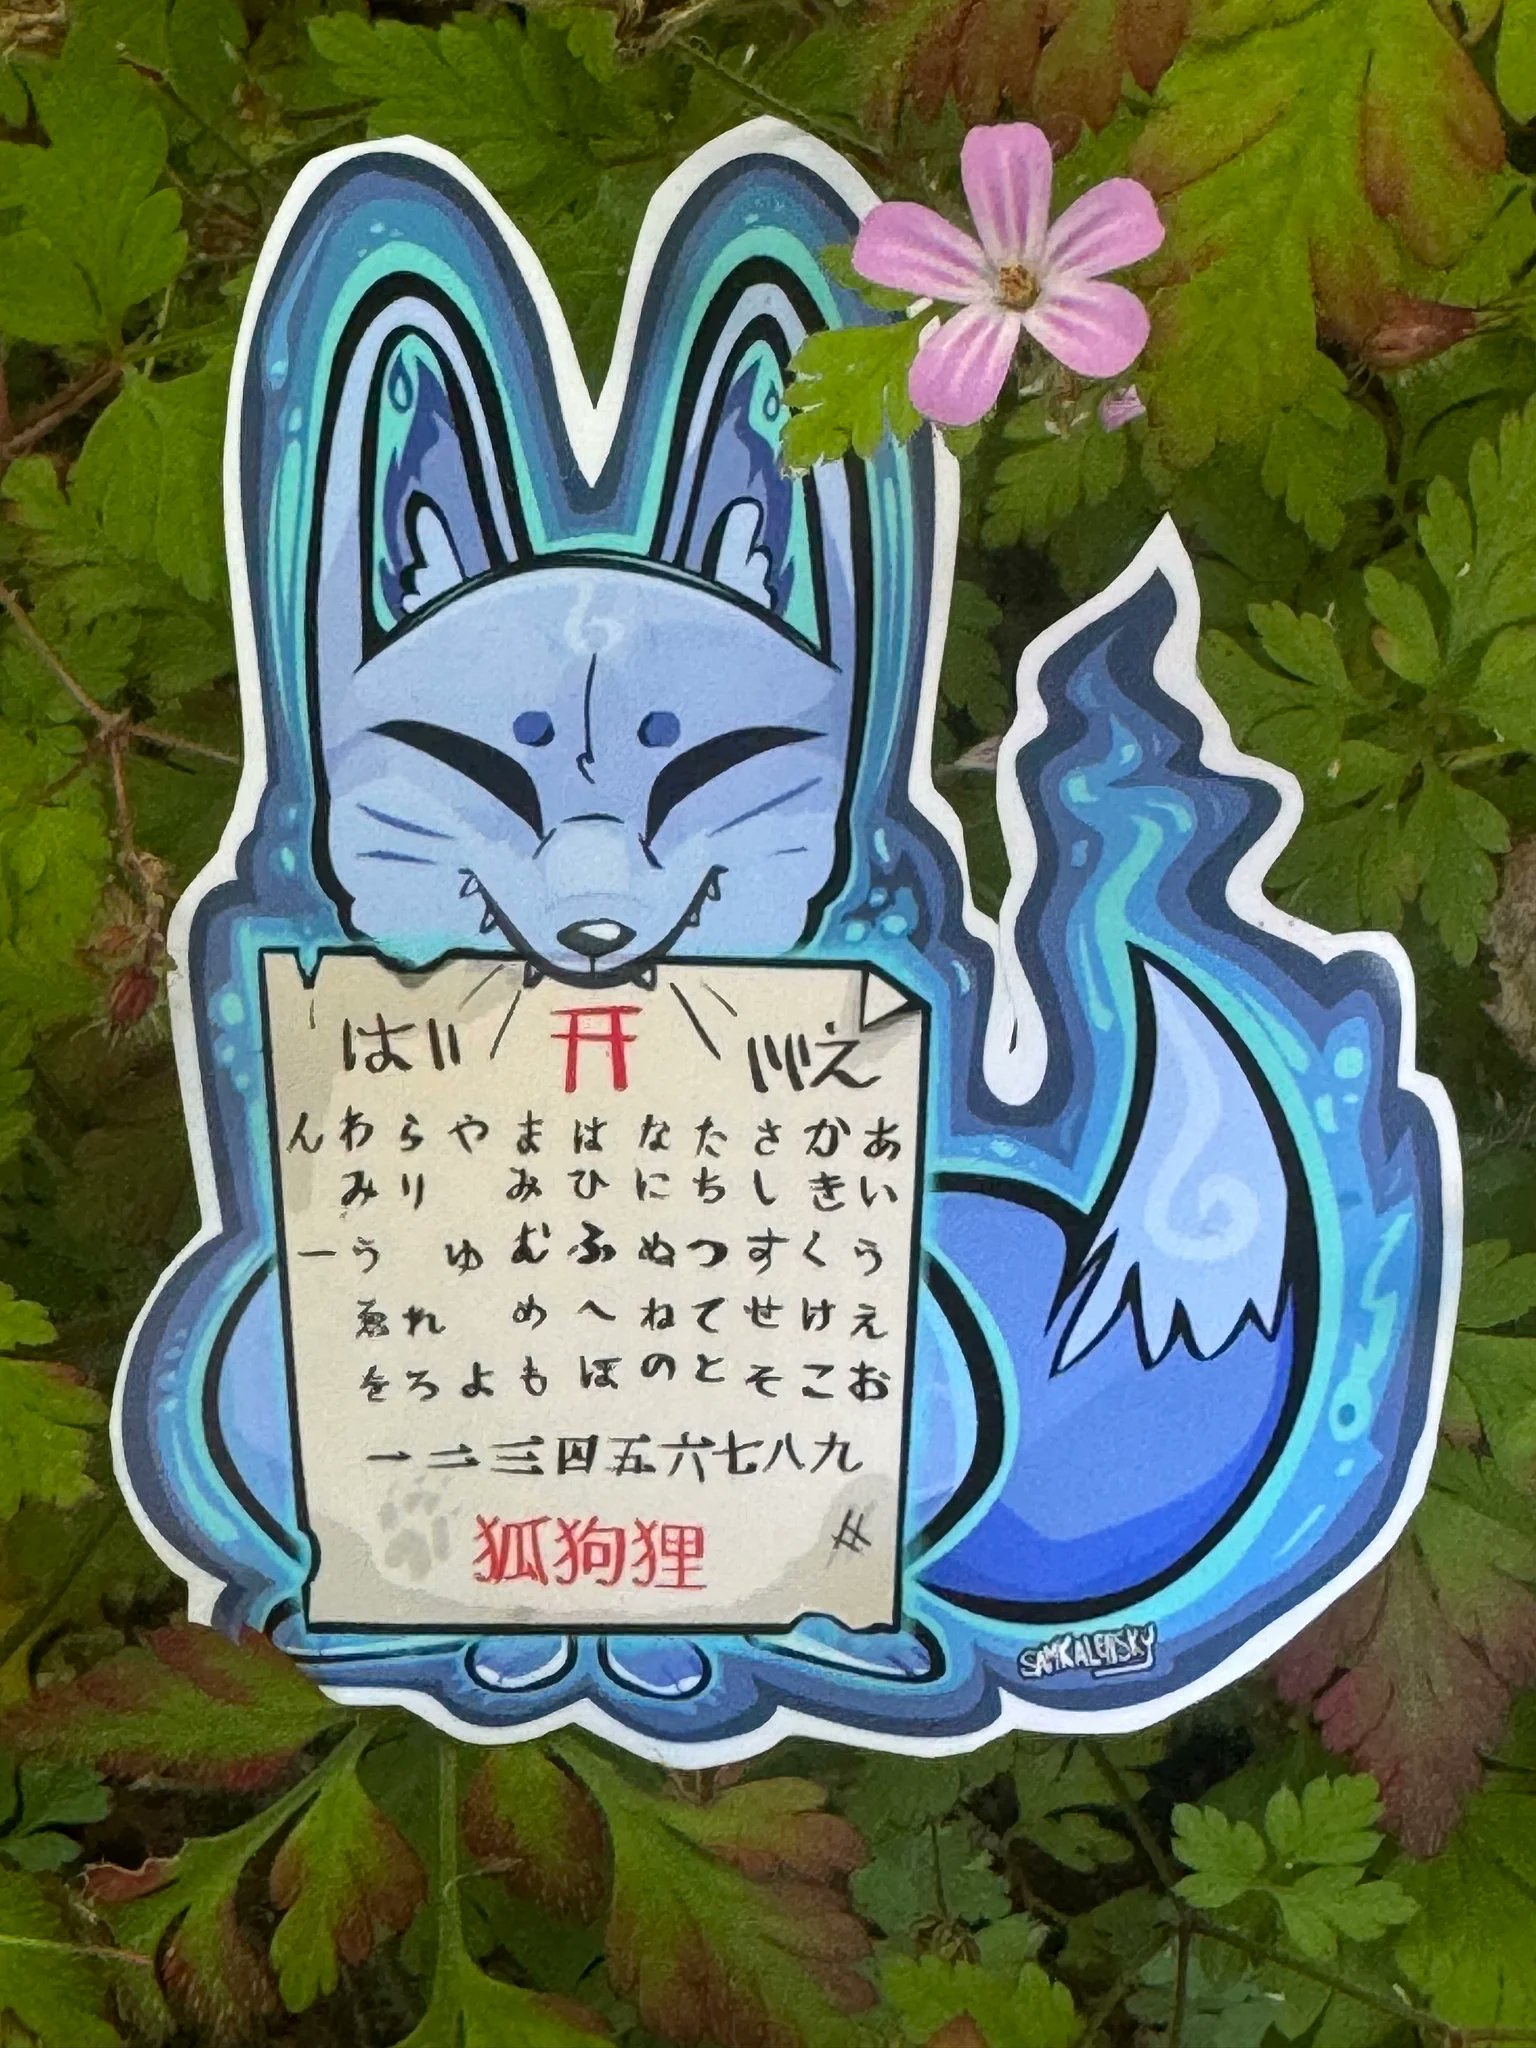 はい いいえ
ん わ ら や ま は な た さ か あ
み り み ひ に ち し き い
ー う ゆ む ふ ぬ つ す く う
ゑ れ め へ ね て せ け え
を ろ よ も ほ の と そ こ お
一 二 三 四 五 六 七 八 九
狐狗狸